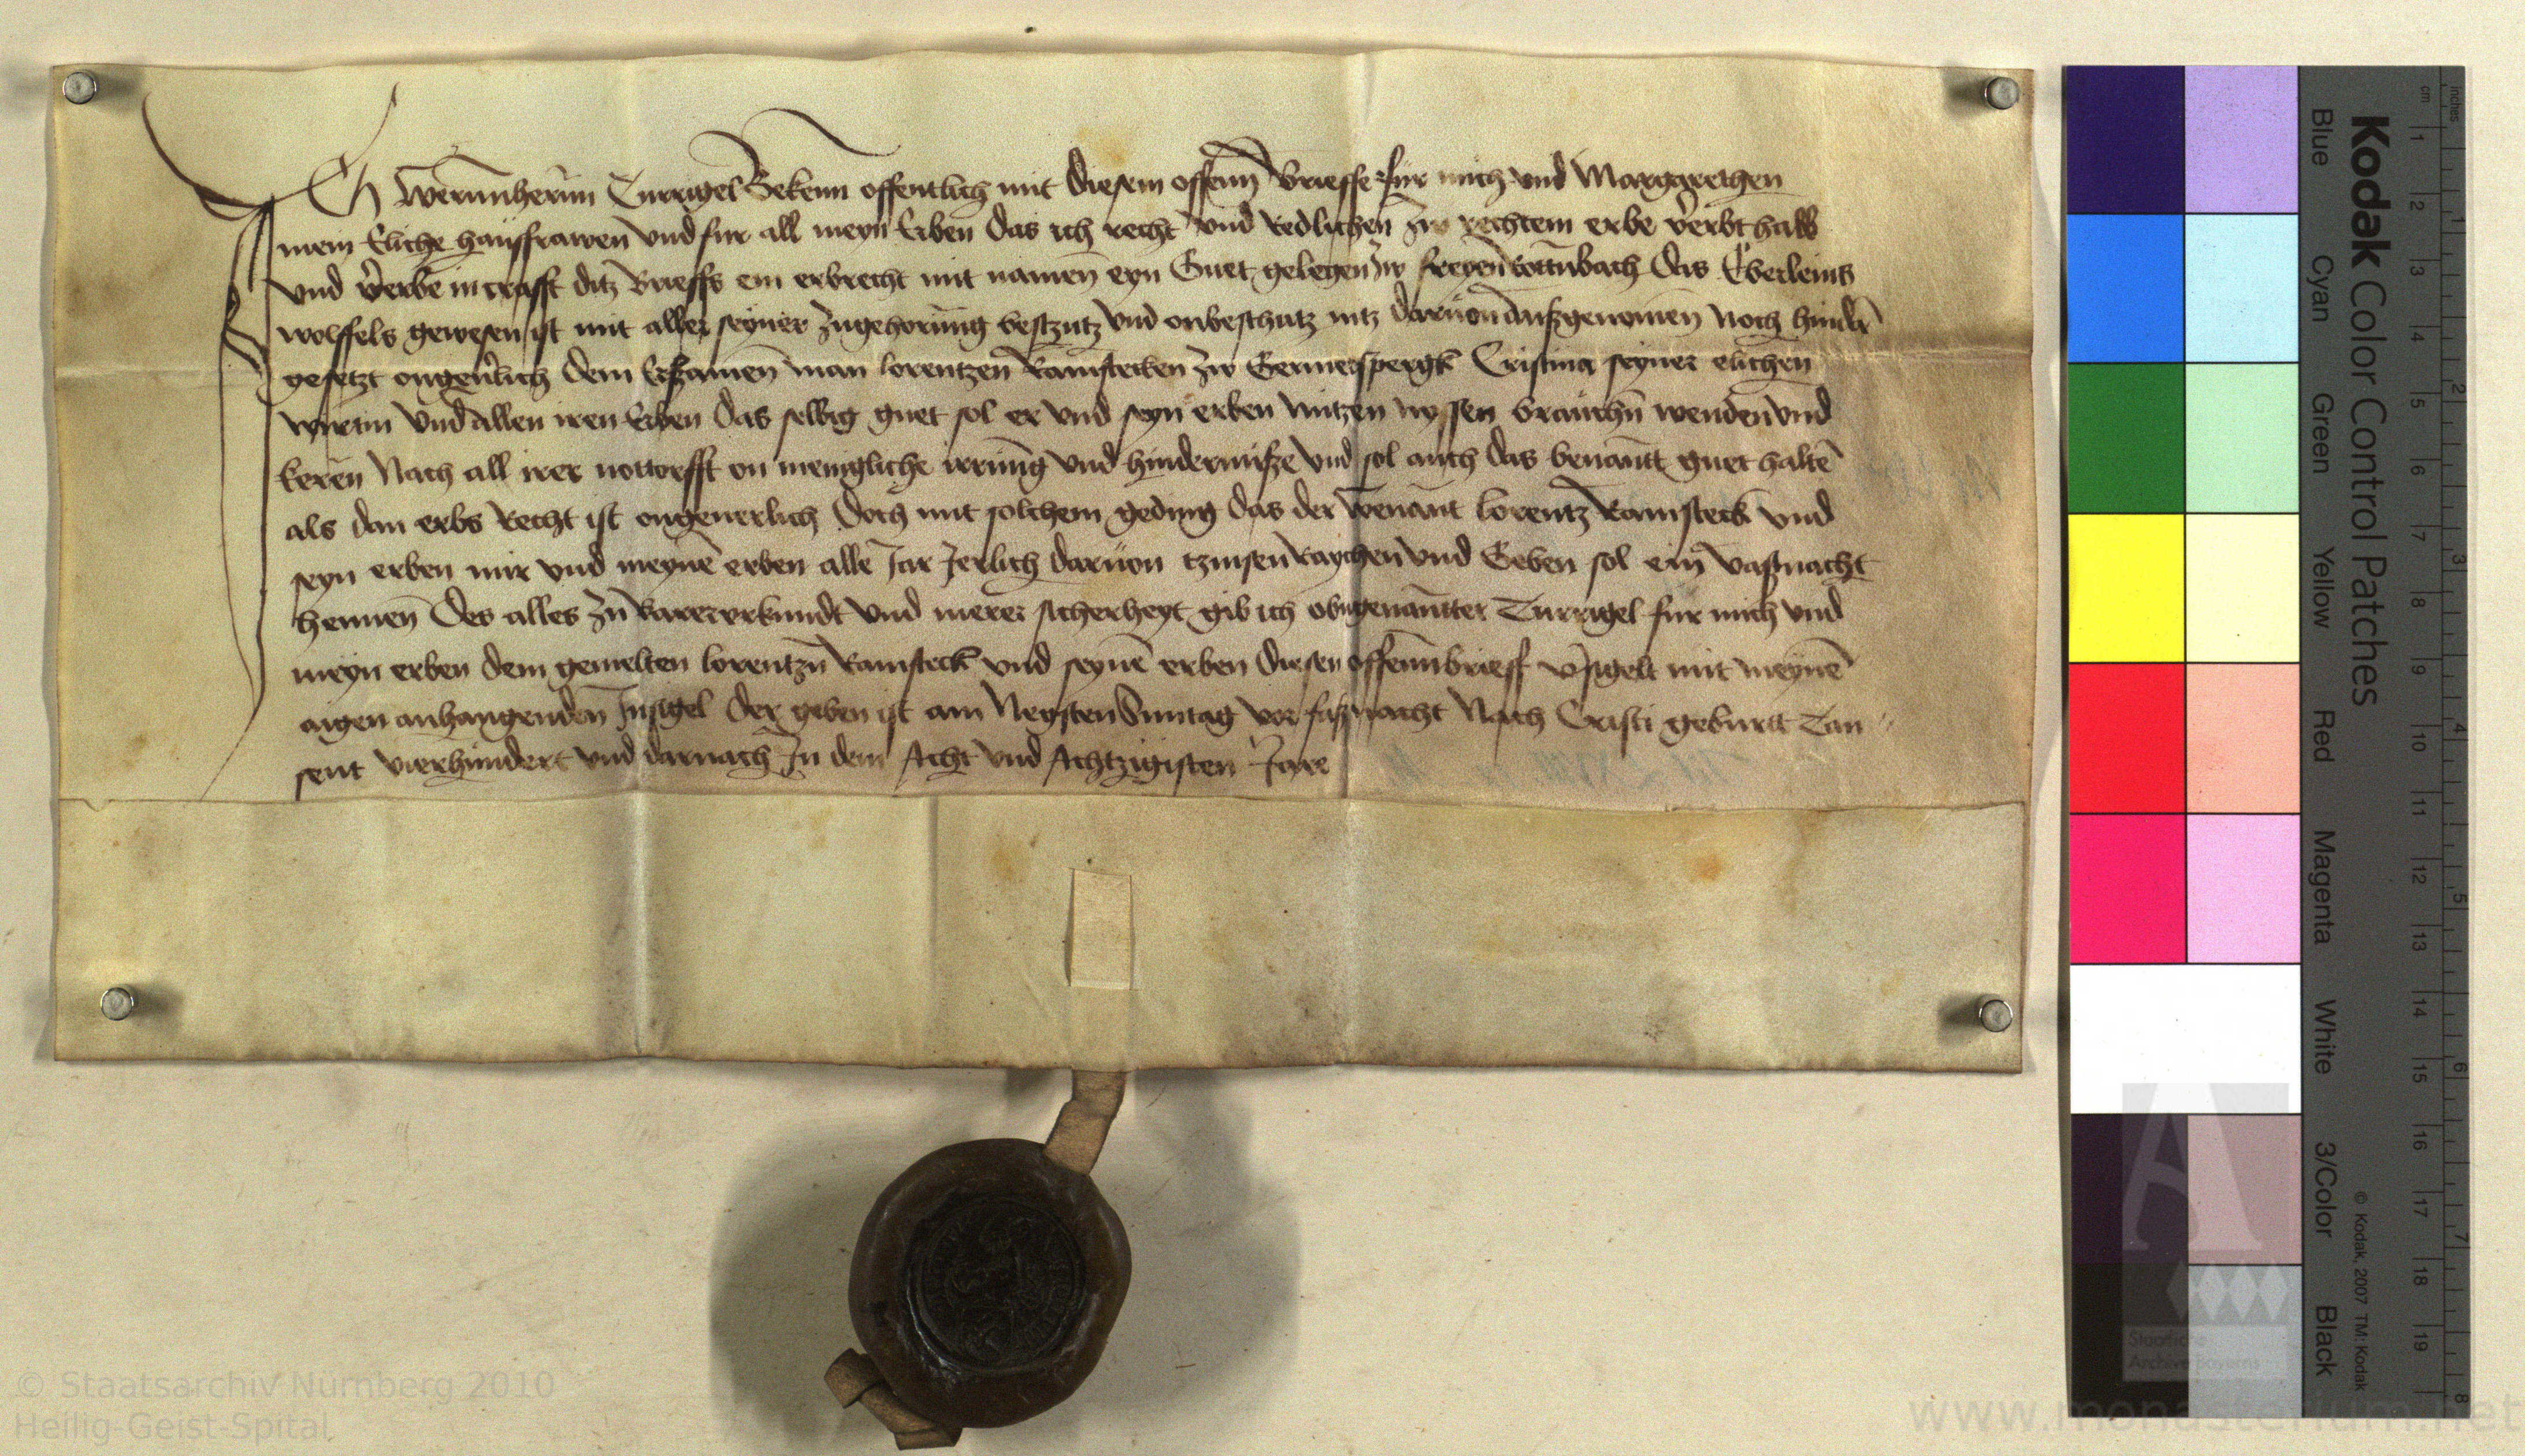 Ich Wernnhernn Turrigel Bekenn offentlich mit diesem offenn Brieffe fur mich und Margarethen
mein Eliche haußfrawen und fur all meyn Erben das ich recht und Redlichen zw rechtem erbe v̉erbt hab
und v̉erbe in crafft ditz Brieffs ein erbrecht mit namen eyn Guet gelegen zw freyen Rottnbach das Eberleins
wolffels gewesen ist mit aller seyner zugehorung beschutz und onbeschutz nitz daruon außgenomen noch hinder
gesetzt ongeu̓lich dem Erßamen man lorentzen Ramstecken zw Germerspergk Cristina seyner elichen
wirtin und allen iren Erben das selbig guet sol er und seyn erben nutzen nyssen brauchn̄ wenden und
keren Nach all irer nottorfft on menigliche irrung und hindernuße und sol auch das benantt guet haltē
als dan erbs Recht ist ongeuerlich doch mit solchem geding das der benant lorentz Ramsteck und
seyn erben mir und meynē erben alle Jar Jerlich daruon tzinsen Raychen und Geben sol ein vaßnacht
hennen des alles zu warer vrkundt und merer sicherheyt gib ich obngenantter Turrigel fur mich und
meyn erben dem gemelten lorentzn̄ Ramsteck und seynē erben diesen offennbrieff v̓sigelt mit meynē
aigen anhangenden Jnsigel der geben ist am Negsten Suntag vor faßnacht Nach Cristi geburtt Tau
sent vierhundert und darnach Jn dem Acht und Achtzigisten Jare
Kodak Color Control Patches
Blue Cyan Green Yellow Red Magenta White 3/Color Black
© Kodak, 2007 TM: Kodak
inches 1 2 3 4 5 6 7 8
cm 1 2 3 4 5 6 7 8 9 10 11 12 13 14 15 16 17 18 19
Staatliche
Archive Bayerns
© Staatsarchiv Nürnberg 2010
Heilig-Geist-Spital
www.monasterium.net